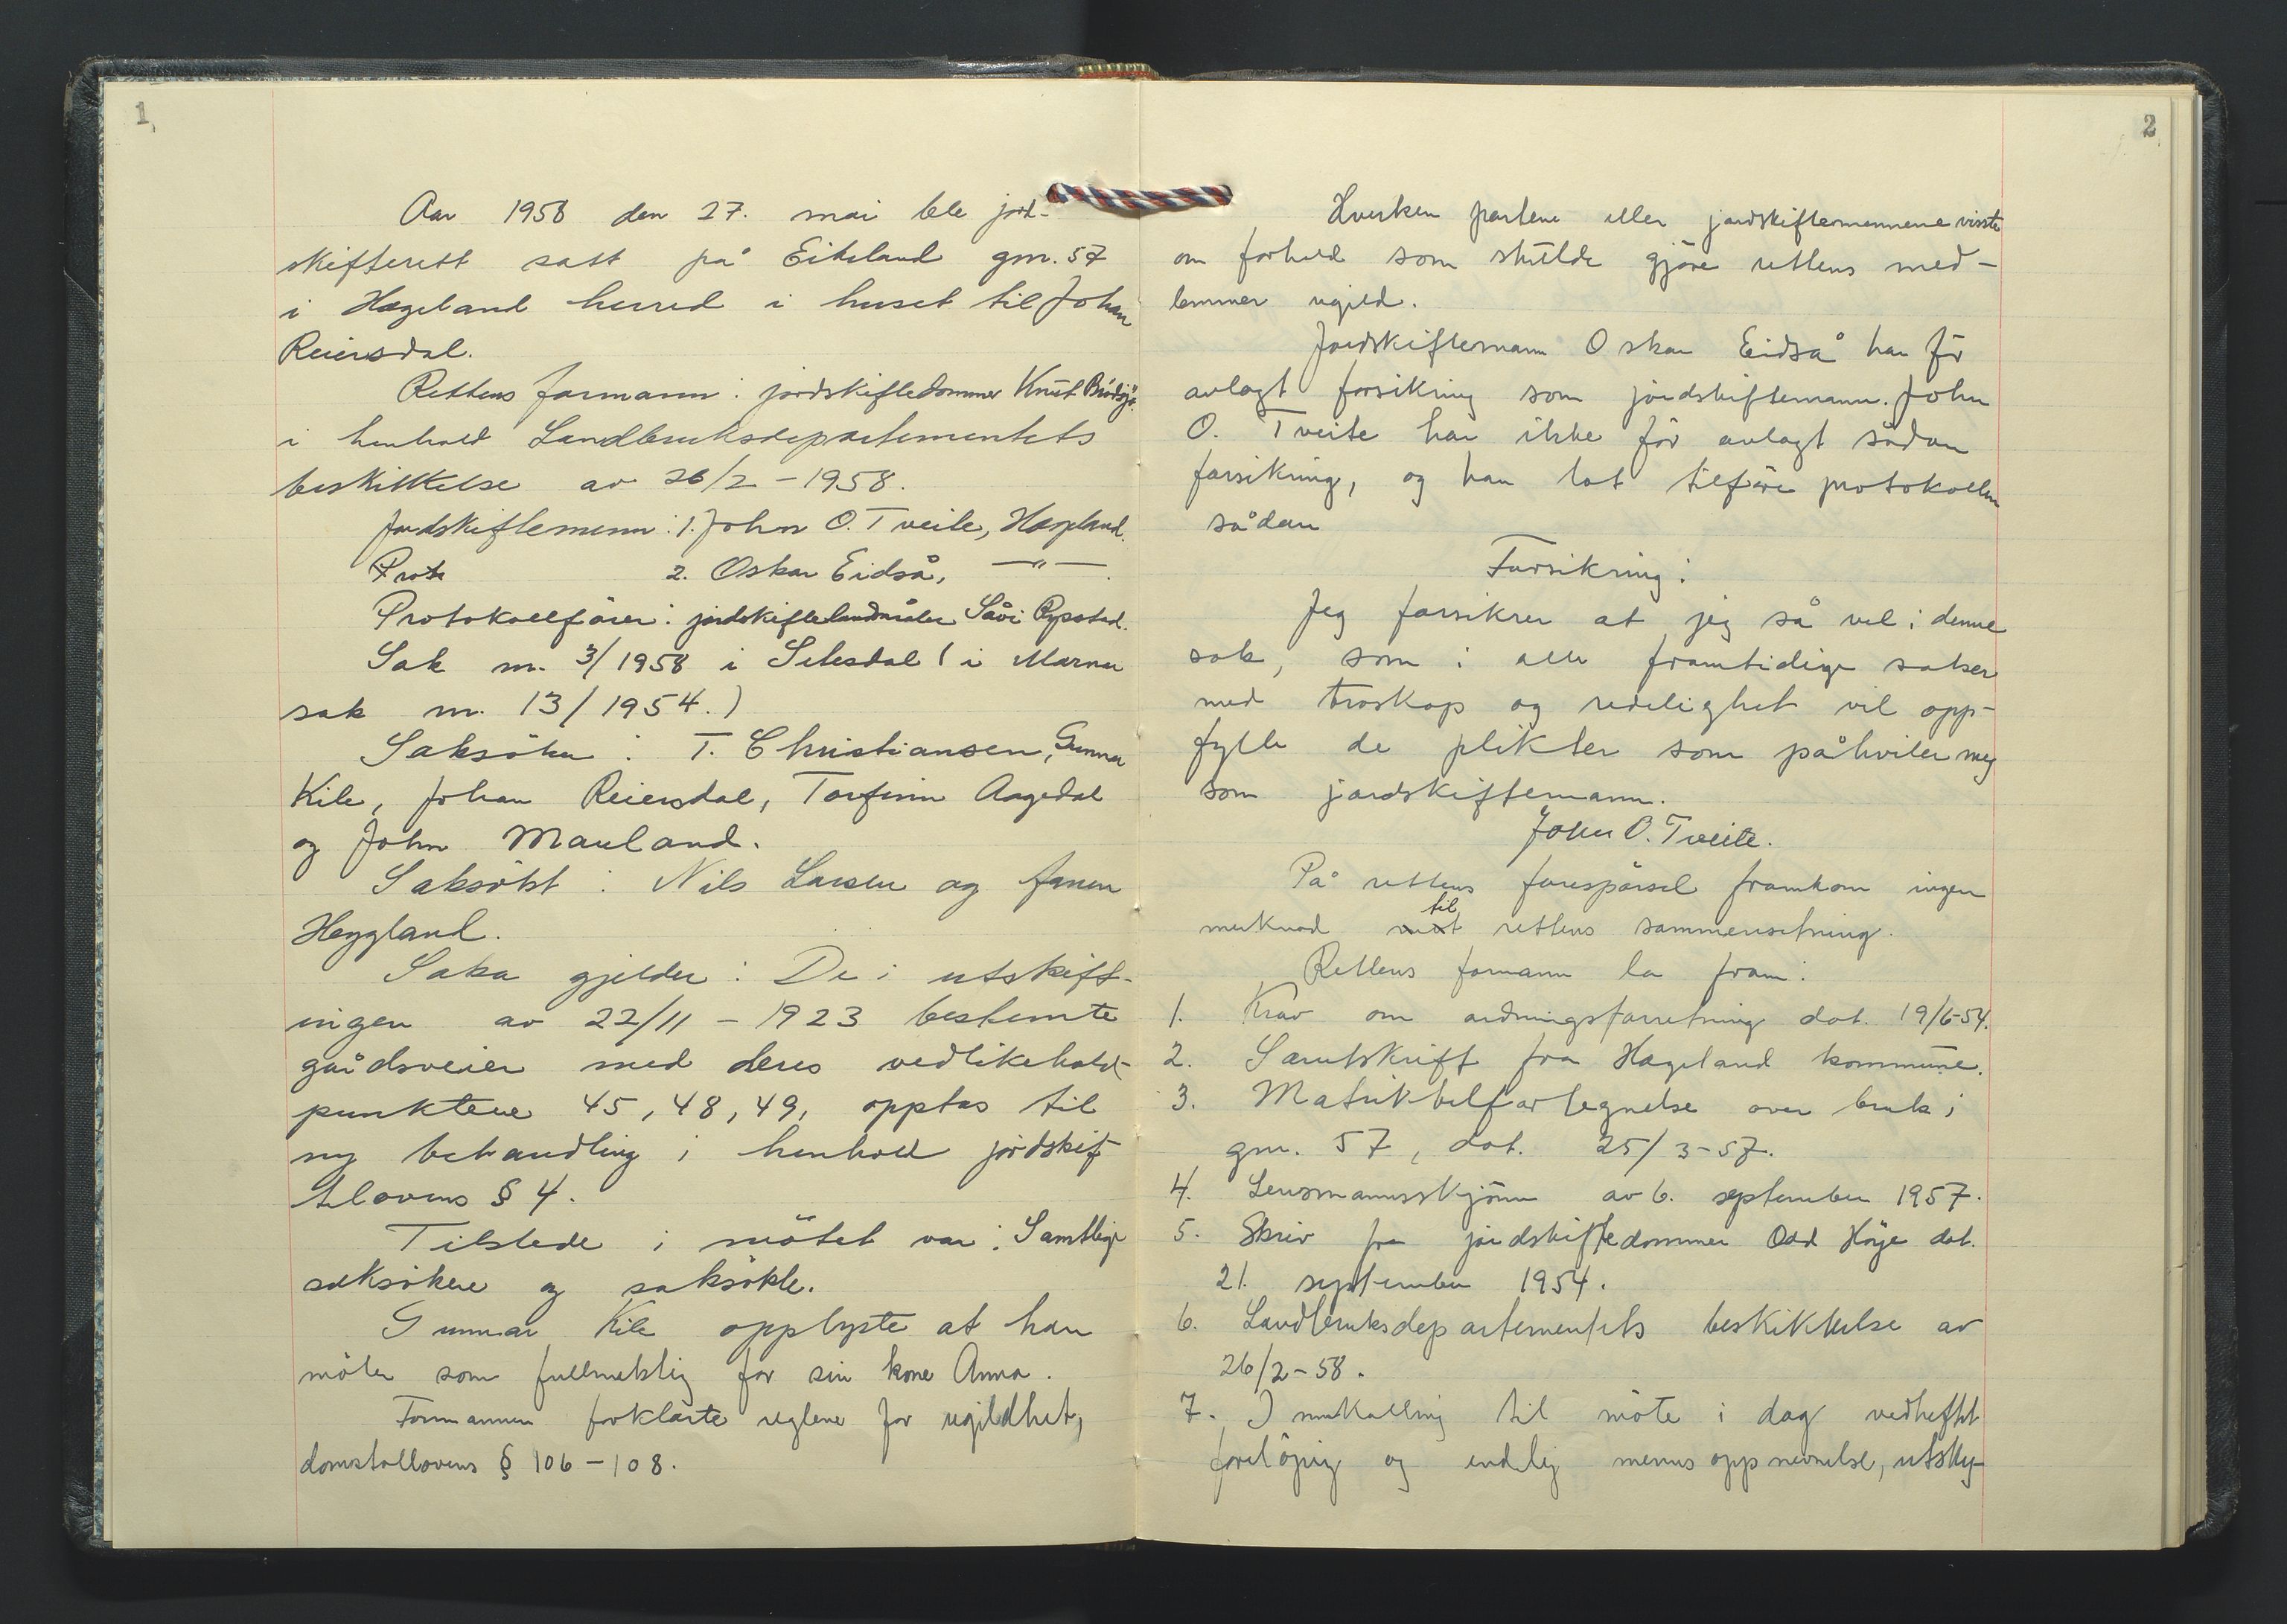 1
Aar 1958 den 27. mai ble jord-
skifterett satt på Eikeland gnr. 57
i Hægeland herred i huset til Johan
Reiersdal.
Rettens formann: jordskiftedommer Knut
i henhold Landbruksdepartementets
beskikkelse av 26/2 - 1958.
Jordskiftemenn: 1. John O. Tveite, Hægeland.
Prot 2. Oskar Eidså, —"—
Protokollfører: jordskiftelandmåler Rysstad.
Sak nr. 3/1958 i Setesdal (i Marnar
sak nr. 13/1954.)
Saksöker: T. Christiansen, Gunnar
Kile, Johan Reiersdal, Torfinn Aagedal
og John Mauland.
Saksökt: Nils Larsen og
Heggland.
Saka gjelder: De i utskift-
ingen av 22/11 - 1923 bestemte
gårdsveier med deres vedlikehold-
punktene 45, 48, 49, opptas til
ny behandling i henhold jordskif-
tlovens § 4.
Tilstede i mötet var: Samtlige
saksökere og saksökte.
Gunnar Kile opplyste at han
möter som fullmektig for sin kone Anna.
Formannen forklarte reglene for ugildhet,
domstollovens § 106 - 108.
2
Hverken partene eller jordskiftemennene visste
om forhold som skulde gjöre rettens med-
lemmer ugild.
Jordskiftemann Oskar Eidså har för
avlagt forsikring som jordskiftemann. John
O. Tveite har ikke för avlagt sådan
forsikring, og han lot tilföre protokollen
sådan
Forsikring:
Jeg forsikrer at jeg så vel i denne
sak, som i alle framtidige saker
med troskap og redelighet vil opp-
fylle de plikter som påhviler meg
som jordskiftemann.
John O. Tveite.
På rettens forespörsel framkom ingen
til
merknad mot rettens sammensetning.
Rettens formann la fram:
1. Krav om ordningsforretning dat. 19/6-54.
2. Særutskrift fra Hægeland kommune.
3. Matrikkelfortegnelse over bruk i
gnr. 57, dat. 25/3-57.
4. Lensmannsskjönn av 6. september 1957.
5. Skriv fra jordskiftedommer Odd Höye dat.
21. september 1954.
6. Landbruksdepartementets beskikkelse av
26/2-58.
7. Innkalling til möte i dag vedheftet
forelöpig og endelig menns oppnevnelse, utsky-